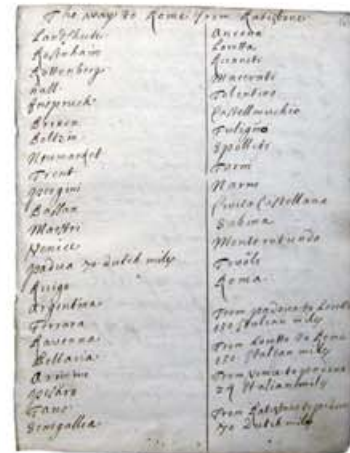 The way to Rome from Ratisbone
Landshute
Rosenhaim
Rottenberg
hall
Inspruck
Brixen
Boltzin
Newmarket
Trent
Pergini
Bassan
Maestri
Venice
padua 70 dutch mily
Ruigo
Argentina
Ferrara
Ravenna
Bellaria
Arimini
pesaro
Fano
Senegallia
Ancona
Loretta
Recanati
Macerati
Tolentino
Castellmuchio
Fuligno
Spolleti
Terni
Narni
Civita Castellana
Sabina
Monterotundo
Roma
From padova to Loreto
Italian mily
From Loretto to Rome
Italian mily
From Venice to padova
24 Italian mily
From Ratisbone to padova
70 Dutch mily